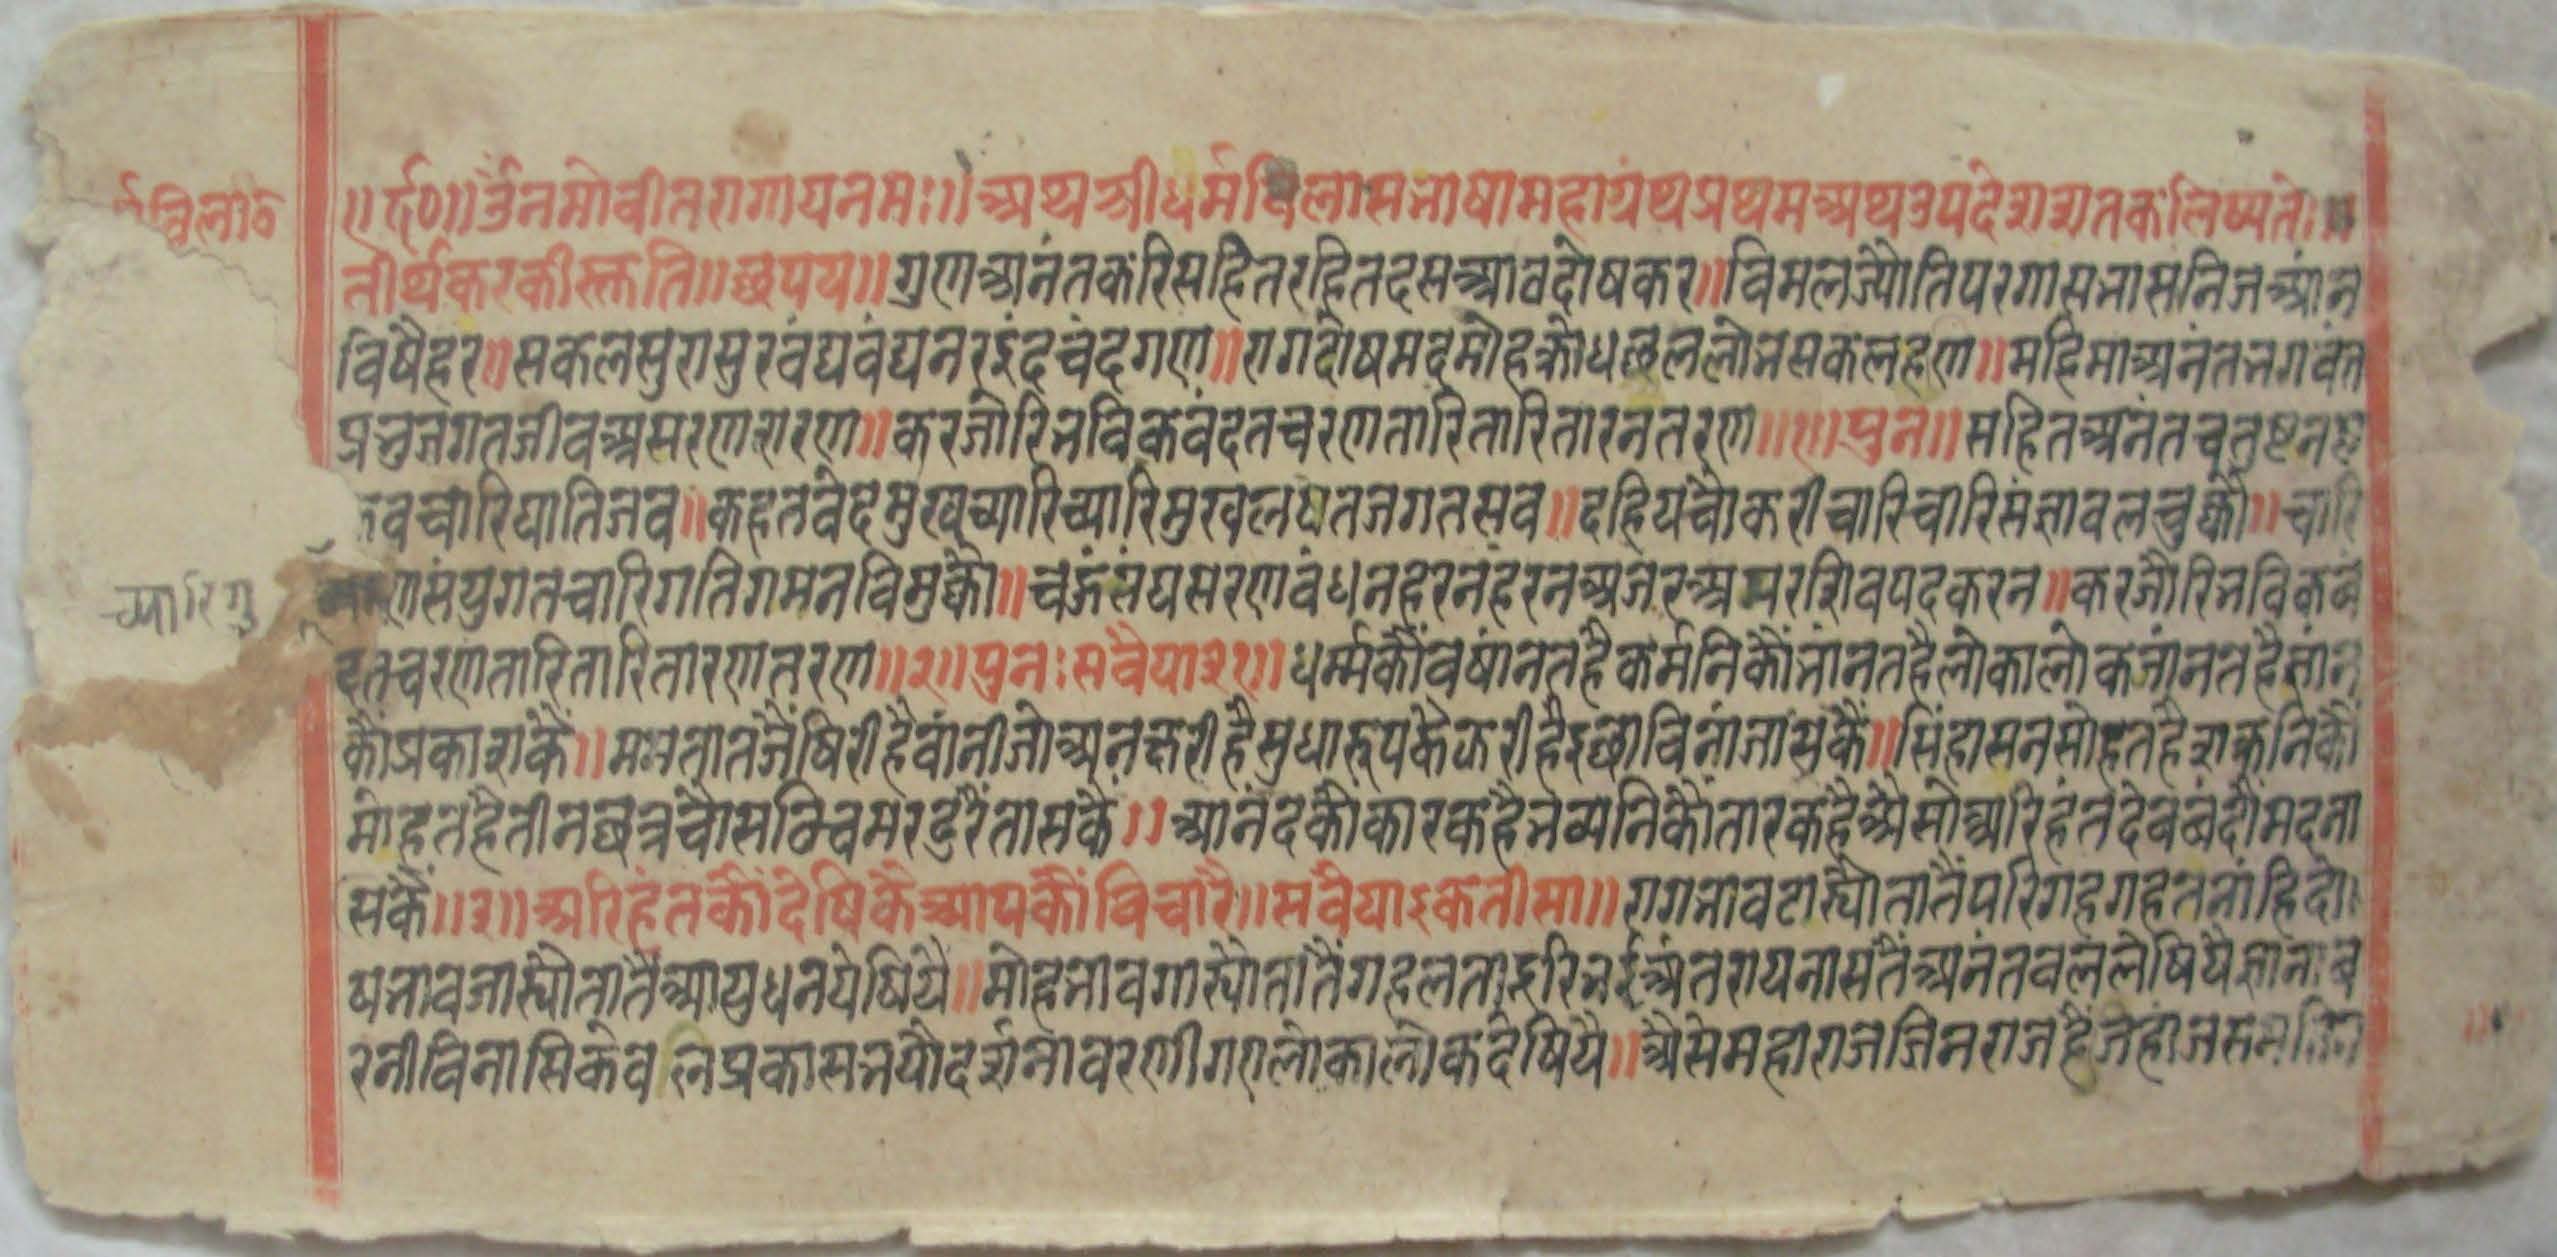 र्मविला०
॥ ६०॥ ॐनमोवीतरागायनमः॥ अथश्रीधर्मविलासभाषामहाग्रंथप्रथमअथउपदेशशतकलिष्यते॥
तीर्थकरकीस्तुति॥छपय॥गुणअनंतकरिसहितरहितदसआवदोषकर॥विमलज्योतिपरगासभासनिजआंन
विषैहर॥सकलसुरासुरवंद्यवंद्यनरइंदचंदगण॥रागदोषमदमोहक्रोधछललोभसकलहण॥महिमाअनंतभगवंत
प्रभुजगतजीवअसरणशरण॥करजोरिभविकवंदतचरणतारितारितारनतरण॥१॥पुन॥सहितअनंतचतुष्टनष्ट
वचारिघातिजव॥कहतवेदमुखच्यारिच्यारिमुखलषतजगतसव॥दहियचोकरीचारिचारिसंज्ञावलचुक्यौ॥चारि
च्यारिगु
णसंयुगतचारिगतिगमनविमुक्यौ॥चऊंसंघसरणवंधनहरनहरनअजरअपरशिवपदकरन॥करजोरिभविकबं
दतचरणतारितारितारणतरण॥२॥पुनःसवैया३१॥धर्म्मकौंवषांनतहैकर्मनिकौंभांनतहैलोकालोकजांनतहैग्यांन
कौंप्रकाशकें॥ममतातजैंषिरीहैवांनीजोअनक्षरीहैसुधारूपकेफरीहैइछाविनांजासकैं॥सिंहासनसोहतहैशक्रनिकौं
मोहतहैतीनछत्रचोसठिचमरढुरैंतासकें॥आनंदकौंकारकहैभव्यनिकौंतारकहैऐसोअरिहंतदेवबंदौंमदना
सकें॥३॥अरिहंतकौंदेषिकैआपकौंविचारै॥सवैयाइकतीसा॥रागभावटास्यौतातैंपरिगहगहतनांहिदो
षभावजास्यौतातैंआयुधनपेषियै॥मोहभावगास्यौतातैंगहलताइरिभईअंतरायनासतैंअनंतवललेषियैज्ञानाव
रनीविनासिकेवलप्रकासभयौदर्शनावरणीगएलोकालोकदेषियै॥ऐसेमहाराजजिनराजहैंजहाजसम